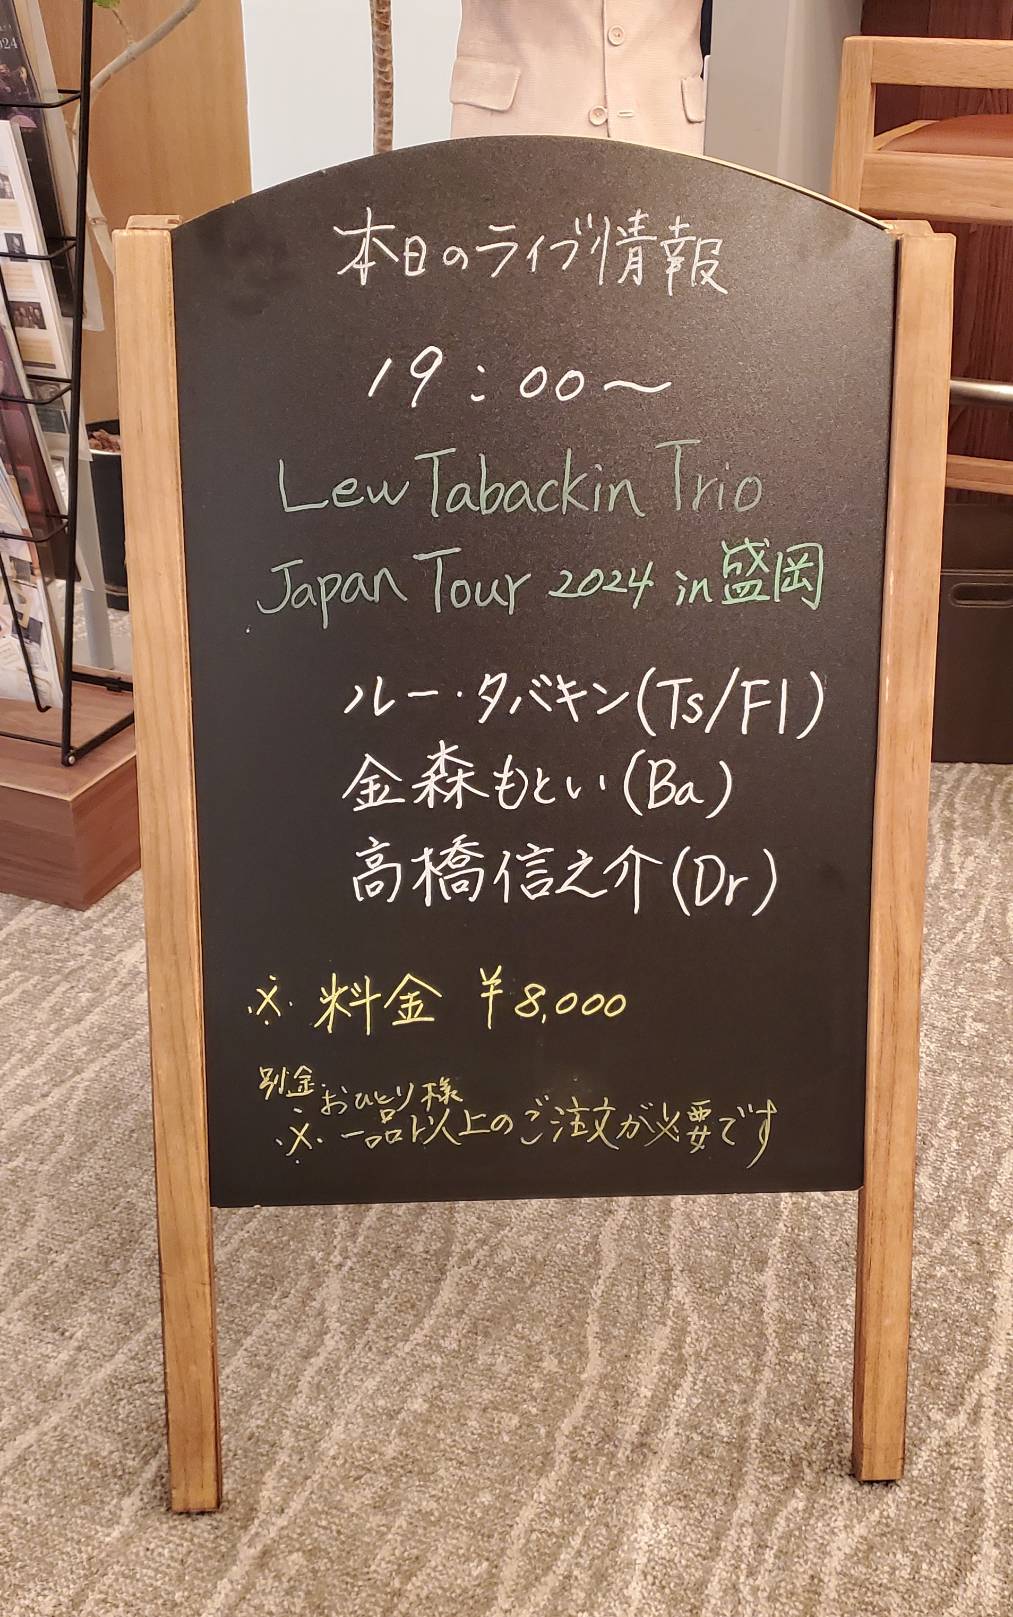 本日のライブ情報
19:00〜
Lew Tabackin Trio
Japan Tour 2024 in 盛岡
ルー・タバキン(Ts/Fl)
金森もとい(Ba)
高橋信之介(Dr)
※料金 ¥8,000
別金 おひとり様
※一品以上のご注文が必要です